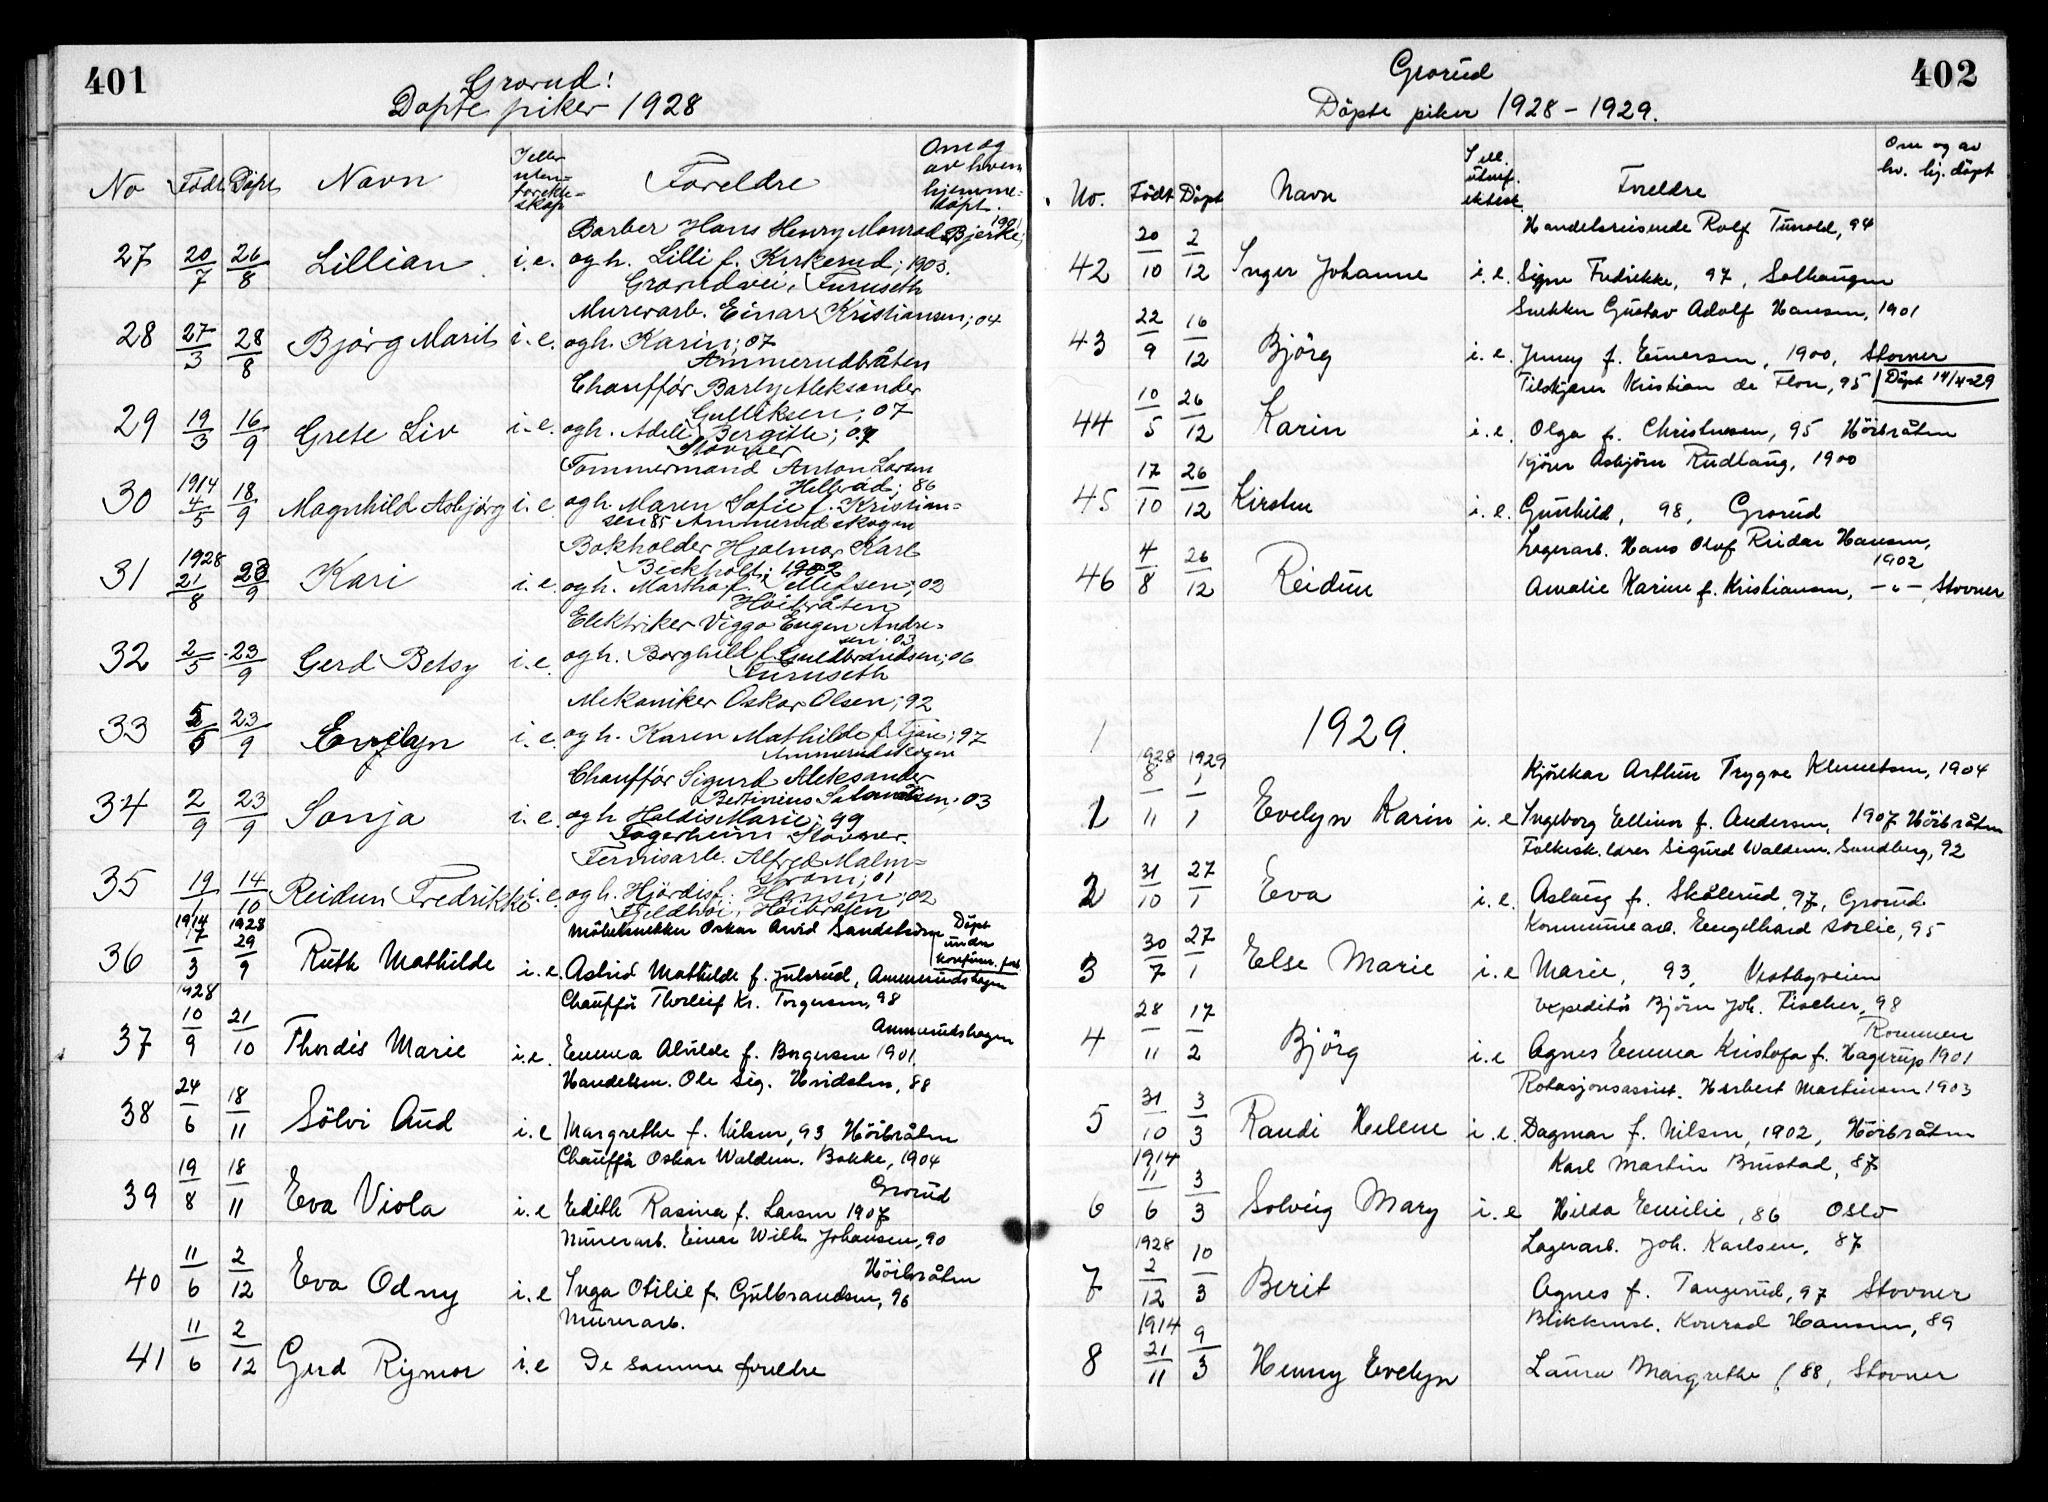 401
Grorud!
Døpte piker 1928
No Født Døpt Navn I eller uten- for ekte- skap Foreldre Om og av hvem hjemme- døpt.
Barber Hans Henry Monrad Bjerke; 1901
27 20/7 26/8 Lillian i.e. og h. Lilli f. Kirkerud; 1903.
Grorudvei, Furuseth
Murerarb. Einar Kristiansen; 04
28 27/3 28/8 Bjørg Marit i.e. og h. Karin; 07
Ammerudbråten
Chauffør Barly Aleksander
Gulliksen; 07
29 19/3 16/9 Grete Liv i.e. og h. Adele Bergitte; 07
Stovner
Tømmermand Anton Larsen
1914 Hellerad; 86
30 4/5 18/9 Magnhild Asbjørg i.e. og h. Maren Sofie f. Kristian-
sen 85 Ammerudskogen
Bokholder Hjalmar Karl
1928 Beckholt; 1902
31 21/8 23/9 Kari i.e. og h. Martha f. Ellefsen; 02
Høibråten
Elektriker Viggo Eugen Andre-
sen. 03
32 2/5 23/9 Gerd Betsy i.e. og h. Borghild f. Guldbrandsen; 06
Furuseth
Mekaniker Oskar Olsen; 92
33 5/6 23/9 Evelyn i.e. og h. Karen Mathilde f. Gjøn; 97
Ammerudskogen
Chauffør Sigurd Aleksander
Bertinius Salomonsen; 03
34 2/9 23/9 Sonja i.e. og h. Haldis Marie; 99
Fagerheim Stovner.
Fernisarb. Alfred Malm-
strøm; 01
35 19/1 14/10 Reidun Fredrikke i.e. og h. Hjørdis f. Hansen; 02
Fjeldhøi, Høibråten
1914 1928 Møbelsnekker Oskar Arvid Sandstrøm Döpt under konfirm. forb.
36 17/3 29/9 Ruth Mathilde i.e. Astrid Mathilde f. Julsrud, Ammerudskogen
1928 Chauffør Thorleif Kr. Torgersen, 98
Ammerudskogen
37 10/9 21/10 Thordis Marie i.e. Emma Alvilde f. Borgersen 1901
Handelsm. Ole Sig. Hvidsten, 88
38 24/6 18/11 Sölvi Aud i.e Margrethe f. Nilsen, 93 Höibråten
Chauffør Oskar Waldem. Bakke, 1904
Grorud
39 19/8 18/11 Eva Viola i.e Edith Rasina f. Larsen 1907
Murerarb. Einar Wilh. Johansen, 90
Höibråten
40 11/6 2/12 Eva Odny i.e Inga Otilie f. Gulbrandsen, 96
Murerarb.
41 11/6 2/12 Gerd Rigmor i.e De samme foreldre
402
Grorud
Döpte piker 1928 – 1929.
No. Födt Döpt Navn I ell. utenf. ektesk. Foreldre Om og av hv. hj. döpt
Handelsreisende Rolf Tunold, 94
42 20/10 2/12 Inger Johanne i.e. Signe Fredrikke, 97, Solhaugen
Snekker Gustav Adolf Hansen, 1901
43 22/9 16/12 Björg i.e. Jenny f. Einersen, 1900, Stovner
Tilskjærer Kristian de Flon, 95 Döpt 14/4-29
44 10/5 26/12 Karin i.e. Olga f. Christensen, 95 Höibråten
Kjörer Asbjörn Rudhaug, 1900
45 17/10 26/12 Kirsten i.e. Gunhild, 98, Grorud
Lagerarb. Hans Olaf Reidar Hansen,
1902
46 4/8 26/12 Reidun Amalie Karine f. Kristiansen, –"–, Stovner
1929.
1928 1929
Kjörekar Arthur Trygve Klemetsen, 1904
1 8/11 1/1 Evelyn Karin i.e Ingeborg Ellinor f. Andersen, 1907 Höibråten
Folkesk.lærer Sigurd Waldem. Sandberg, 92
2 31/10 27/1 Eva i.e. Aslaug f. Skålerud, 97, Grorud
Kommunearb. Engelhard Sörlie, 95
3 30/7 27/1 Else Marie i.e Marie, 93, Vestbyveien
Expeditör Björn Joh. Fischer, 98
Rommen
4 28/11 17/2 Björg i.e Agnes Emma Kristofa f. Hagerup 1901
Rotasjonsassist. Herbert Martinsen 1903
5 31/10 3/3 Randi Helene i.e. Dagmar f. Nilsen, 1902, Höibråten
1914 Karl Martin Brustad, 87
6 11/6 3/3 Solveig Mary i.e Hilda Emilie, 86 Oslo
1928 Lagerarb. Joh. Karlsen, 87
7 2/12 10/3 Berit Agnes f. Tangerud, 97 Stovner
1914 Blikkensl. Konrad Hansen, 89
8 21/11 9/3 Henny Evelyn Laura Margrethe (88, Stovner